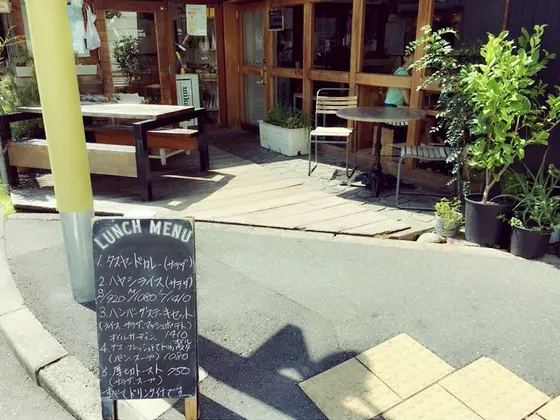 LUNCH MENU
1. タスヤードカレー(サラダ)
2. ハヤシライス(サラダ)
S/920 M/1080 L/1410
3. ハンバーグステーキセット
(ライス、サラダ、マッシュポテト)
1410
4. ナス フレッシュトマトの
(パン、スープ) 1080
厚切トースト 750
(サラダ、スープ)
すべてドリンク付です